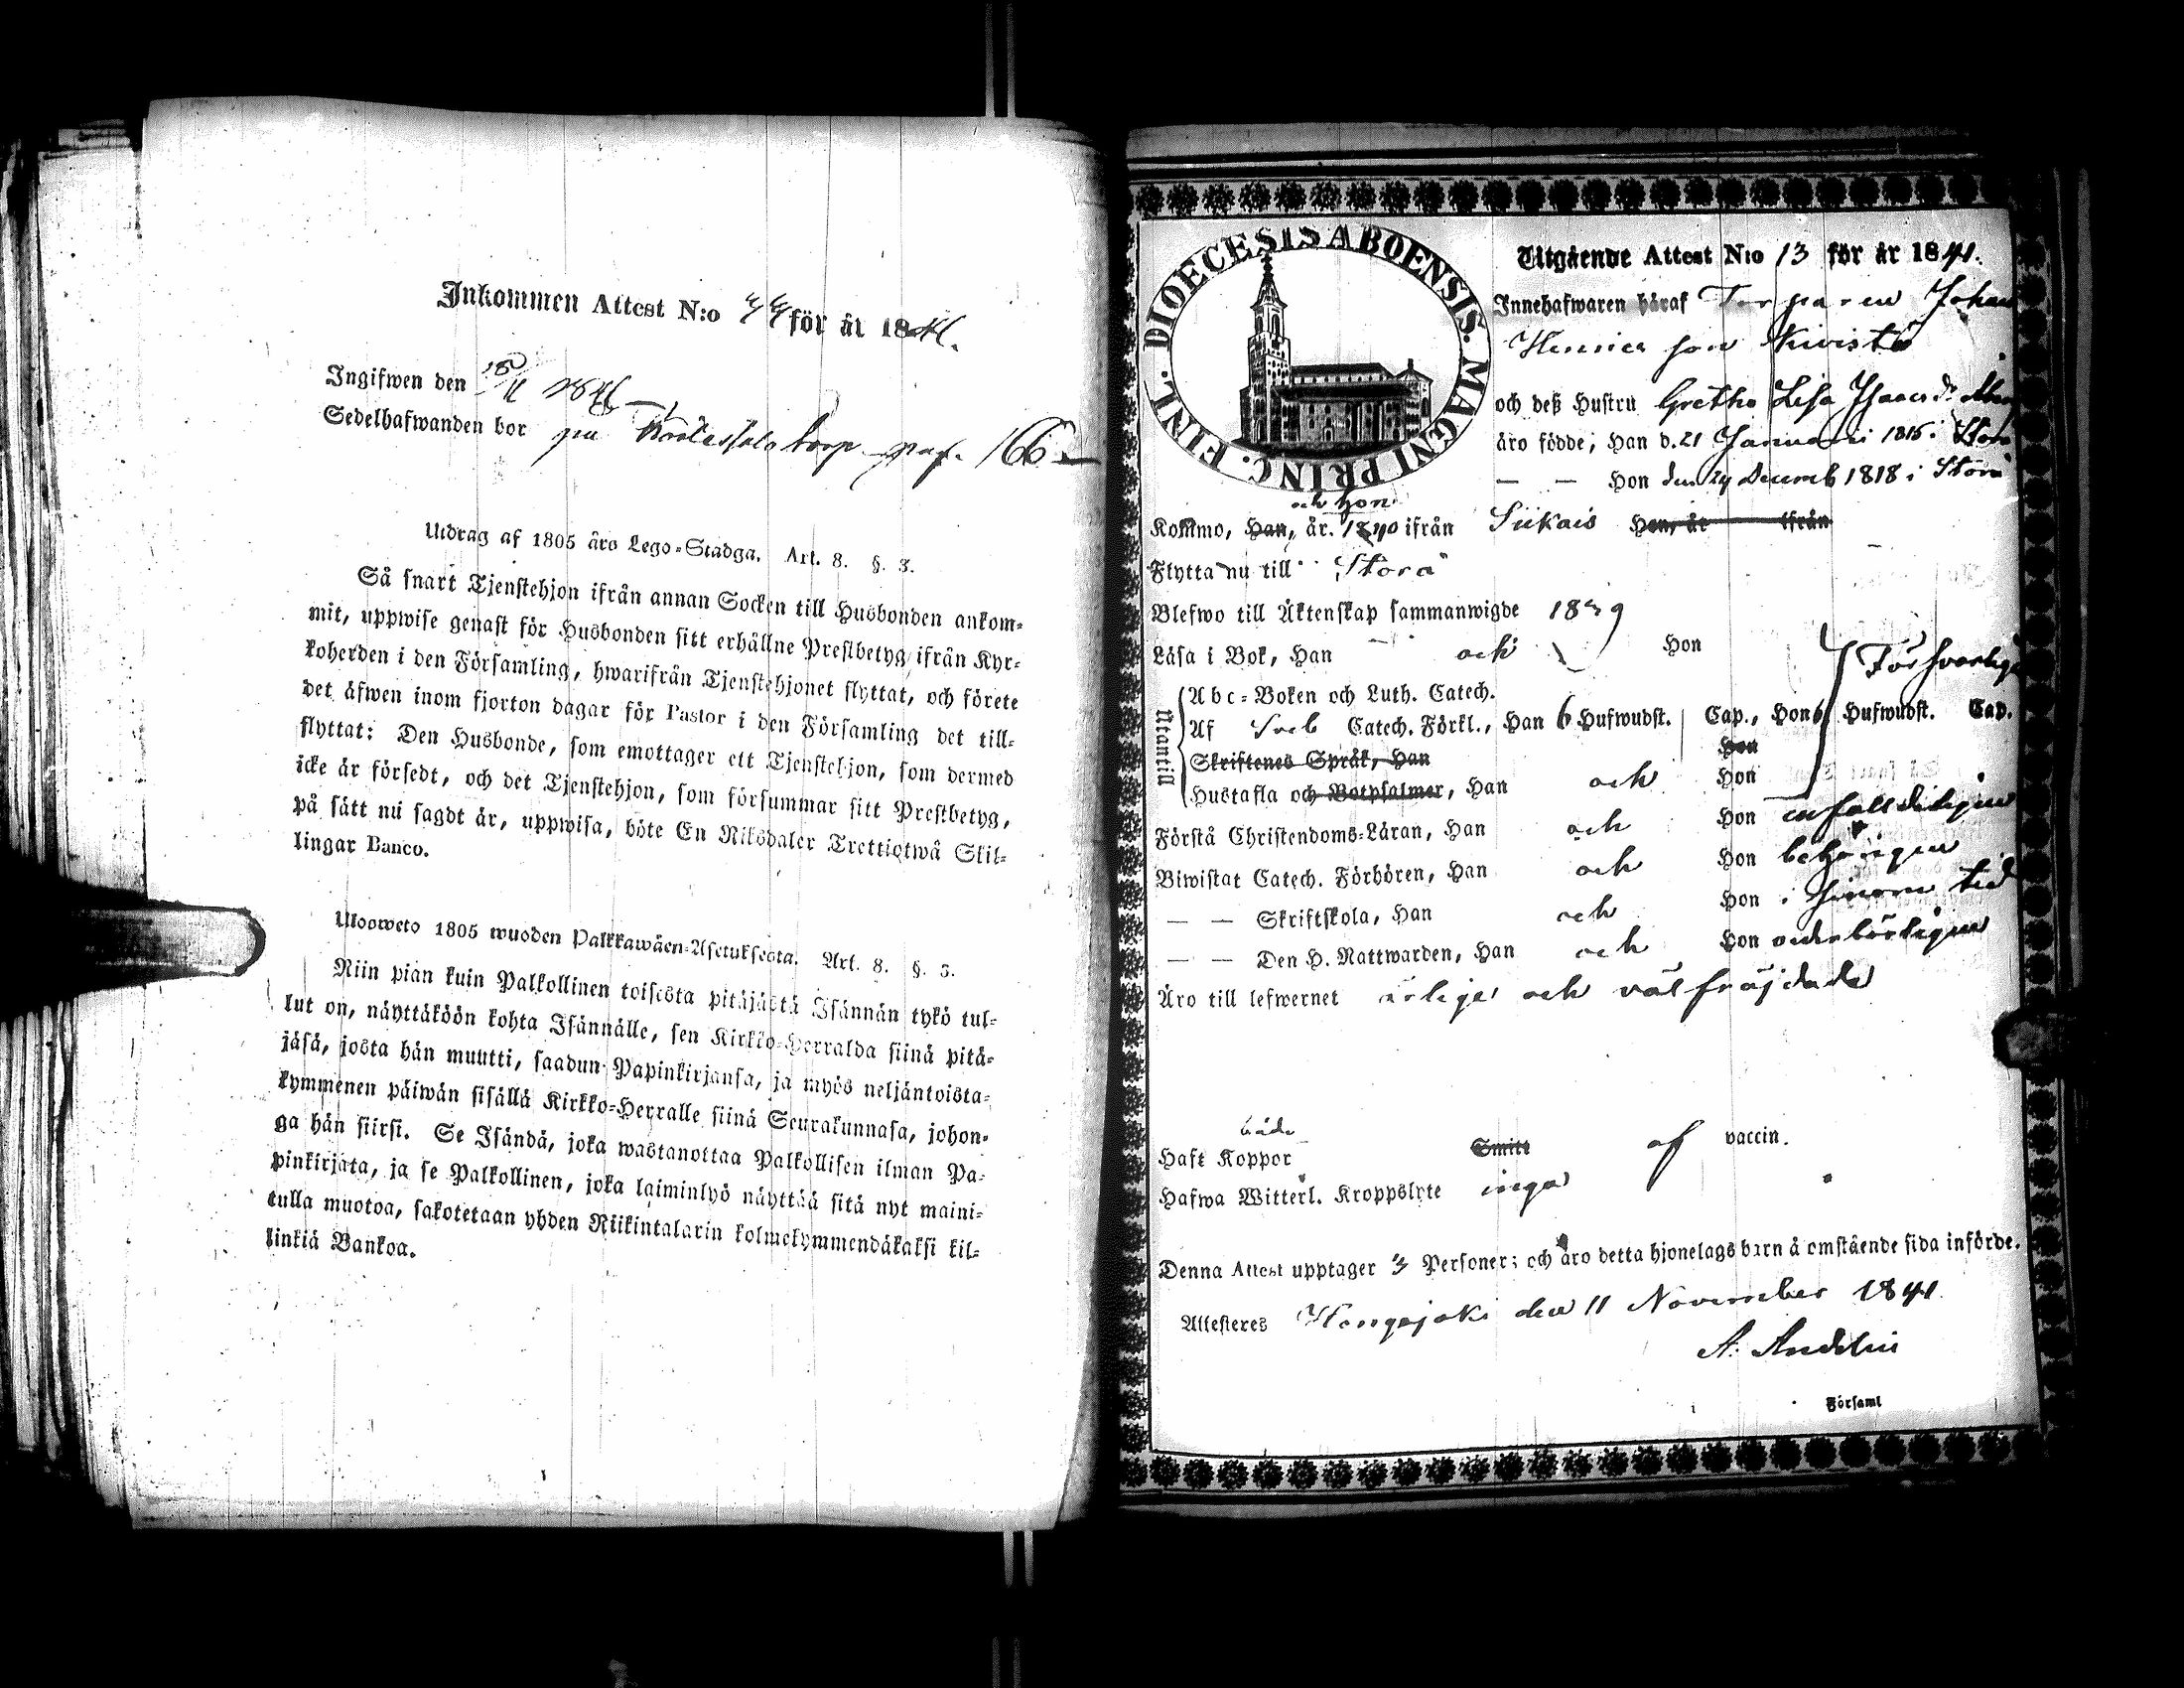 Inkommen Attest N:o 44 för år 1841.
Ingifwen den 18/11 1841
Sedelhafwanden bor på torp pag. 166
Utdrag af 1805 års Lego-Stadga. Art. 8. §. 3.
Så snart Tjenstehjon ifrån annan Socken till Husbonden ankom-
mit, uppwise genast för Husbonden sitt erhållne Prestbetyg ifrån Kyr-
koherden i den Församling, hwarifrån Tjenstehjonet flyttat, och förete
det äfwen inom fjorton dagar för Pastor i den Församling det till-
flyttat: Den Husbonde, som emottager ett Tjenstehjon, som dermed
icke är försedt, och det Tjenstehjon, som försummar sitt Prestbetyg,
på sätt nu sagdt är, uppwisa, böte En Riksdaler Trettiotwå Skil-
lingar Banco.
Uloosweto 1805 wuoden Palkkawäen-Asetuksesta. Art. 8. §. 3.
Niin pian kuin Palkollinen toisesta pitäjästä Isännän tykö tul-
lut on, näyttäköön kohta Isännälle, sen Kirkko-Herralda siinä pitä-
jäsä, josta hän muutti, saadun Papinkirjansa, ja myös neljäntoista-
kymmenen päiwän sisällä Kirkko-Herralle siinä Seurakunnasa, johon-
ga hän siirsi. Se Isändä, joka wastanottaa Palkollisen ilman Pa-
pinkirjata, ja se Palkollinen, joka laiminlyö näyttää sitä nyt maini-
tulla muotoa, sakotetaan yhden Riikintalarin kolmekymmendäkaksi kil-
linkiä Bankoa.
DIOECESIS ABOENSIS. MAGNI PRINC. FINL.
Utgående Attest N:o 13 för år 1841.
Innehafwaren häraf Torparen Johan
Henricsson Kivistö
och deß Hustru Gretha Lisa Isaacsdr
äro födde, Han d. 21 Januari 1815 i Storå
— — Hon den 24 Decemb 1818 i Storå
och hon
Kommo, Han, år. 1840 ifrån Siikais Hon, år ifrån
Flytta nu till Storå
Blefwo till Äktenskap sammanwigde 1839
Läsa i Bok, Han och Hon Försvarligt
Utantill
Abc-Boken och Luth. Catech.
Af Sveb Catech. Förkl., Han 6 Hufwudst. Cap., Hon 6 Hufwudst. Cap.
Skriftenes Språk, Han Hon
Hustafla och Botpsalmer, Han och Hon
Förstå Christendoms-Läran, Han och Hon enfalldeligen
Biwistat Catech. Förhören, Han och Hon behörigen
— — Skriftskola, Han och Hon i sinom tid
— — Den H. Nattwarden, Han och Hon oederbörligen
Äro till lefwernet ärlige och välfräjdade
både
Haft Koppor Smitt af vaccin.
Hafwa Witterl. Kroppslyte inga
Denna Attest upptager 3 Personer; och äro detta hjonelags barn å omstående sida införde.
Attesteres Hongojoki den 11 November 1841.
A. Andelin
Församl